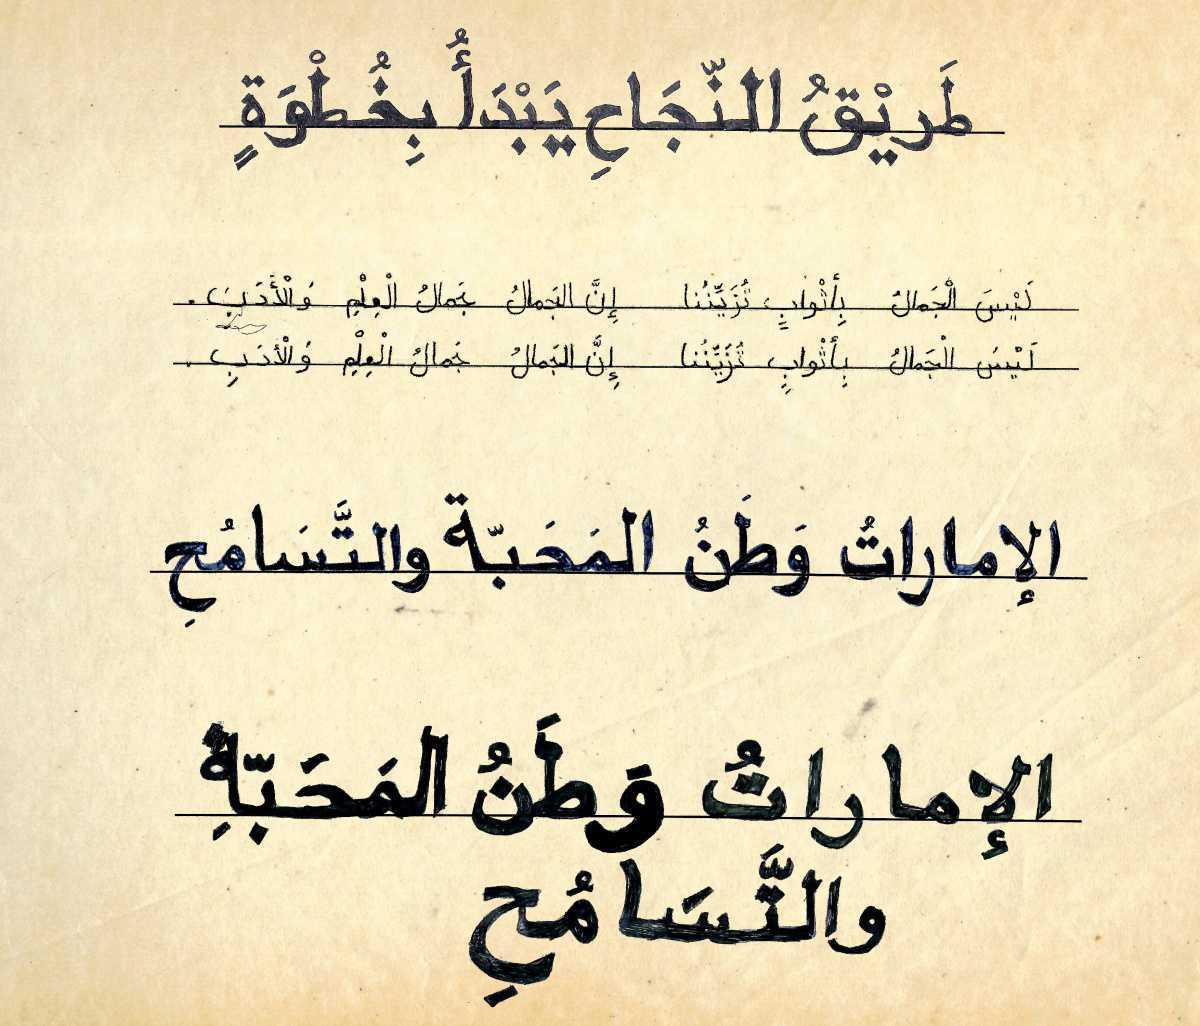 طَرِيْقُ النّجَاحِ يَبْدَأُ بِخُطْوَةٍ
لَيْسَ الْجَمالُ بِأَثْوابٍ تُزَيِّنُنا إِنَّ الجَمالُ جَمالُ الْعِلْمِ وَالْأَدَبِ .
لَيْسَ الْجَمالُ بِأَثْوابٍ تُزَيِّنُنا إِنَّ الجَمالُ جَمالُ الْعِلْمِ وَالْأَدَبِ .
الإماراتُ وَطَنُ المَحَبّة والتَّسَامُحِ
الإماراتُ وَطَنُ المَحَبّةِ
والتَّسَامُحِ